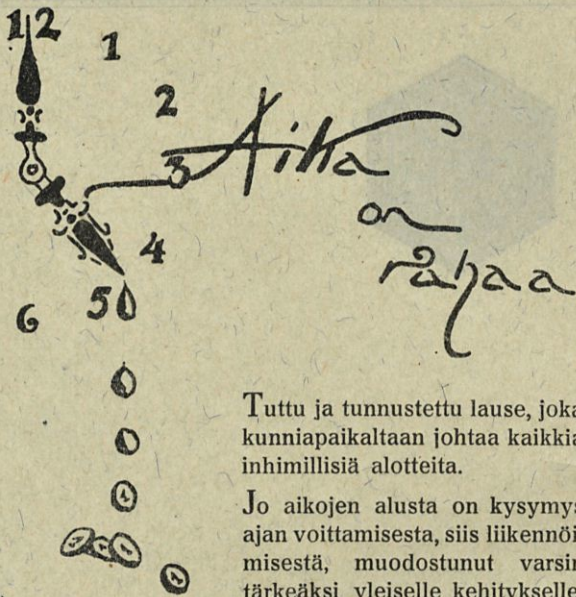 12
1
2
3
4
5
6
Aika
on
rahaa
Tuttu ja tunnustettu lause, joka
kunniapaikaltaan johtaa kaikkia
inhimillisiä alotteita.
Jo aikojen alusta on kysymys
ajan voittamisesta, siis liikennöi-
misestä, muodostunut varsin
tärkeäksi yleiselle kehitykselle